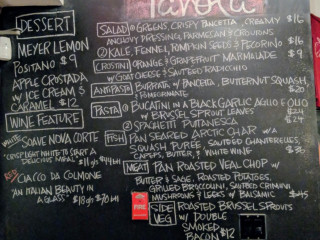 Tavola
DESSERT
MEYER LEMON
POSITANO $9
APPLE CROSTADA
W/ ICE CREAM &
CARAMEL $12
WINE FEATURE
WHITE
SOAVE NOVA CORTE
"CRISP LIGHT WHITE TO START A
DELICIOUS MEAL"
RED
CIACCO DA COLMONE
"AN ITALIAN BEAUTY IN
A GLASS"
SALAD ① GREENS, CRISPY PANCETTA, CREAMY $16
ANCHOVY DRESSING, PARMESAN & CROUTONS
② KALE, FENNEL, PUMPKIN SEEDS & PECORINO $16
CROSTINI ORANGE & GRAPEFRUIT MARMALADE $9
W/ GOAT CHEESE & SAUTEED RADICCHIO
ANTIPASTA BURRATA W/ PANCETTA, BUTTERNUT SQUASH,
& POMEGRANATE $20
PASTA ① BUCATINI IN A BLACK GARLIC AGLIO E OLIO
W/ BRUSSEL SPROUT LEAVES $24
② SPAGHETTI PUTTANESCA $24
FISH PAN SEARED ARCTIC CHAR W/
SQUASH PUREE, SAUTEED CHANTERELLES,
CAPERS, BUTTER, & WHITE WINE $36
MEAT PAN ROASTED VEAL CHOP W/
BUTTER & SAGE, ROASTED POTATOES,
GRILLED BROCCOLINI, SAUTEED CRIMINI
MUSHROOMS & LEEKS W/ BALSAMIC $45
FIRE
SIDE VEG ROASTED BRUSSEL SPROUTS
W/ DOUBLE
SMOKED
BACON $12